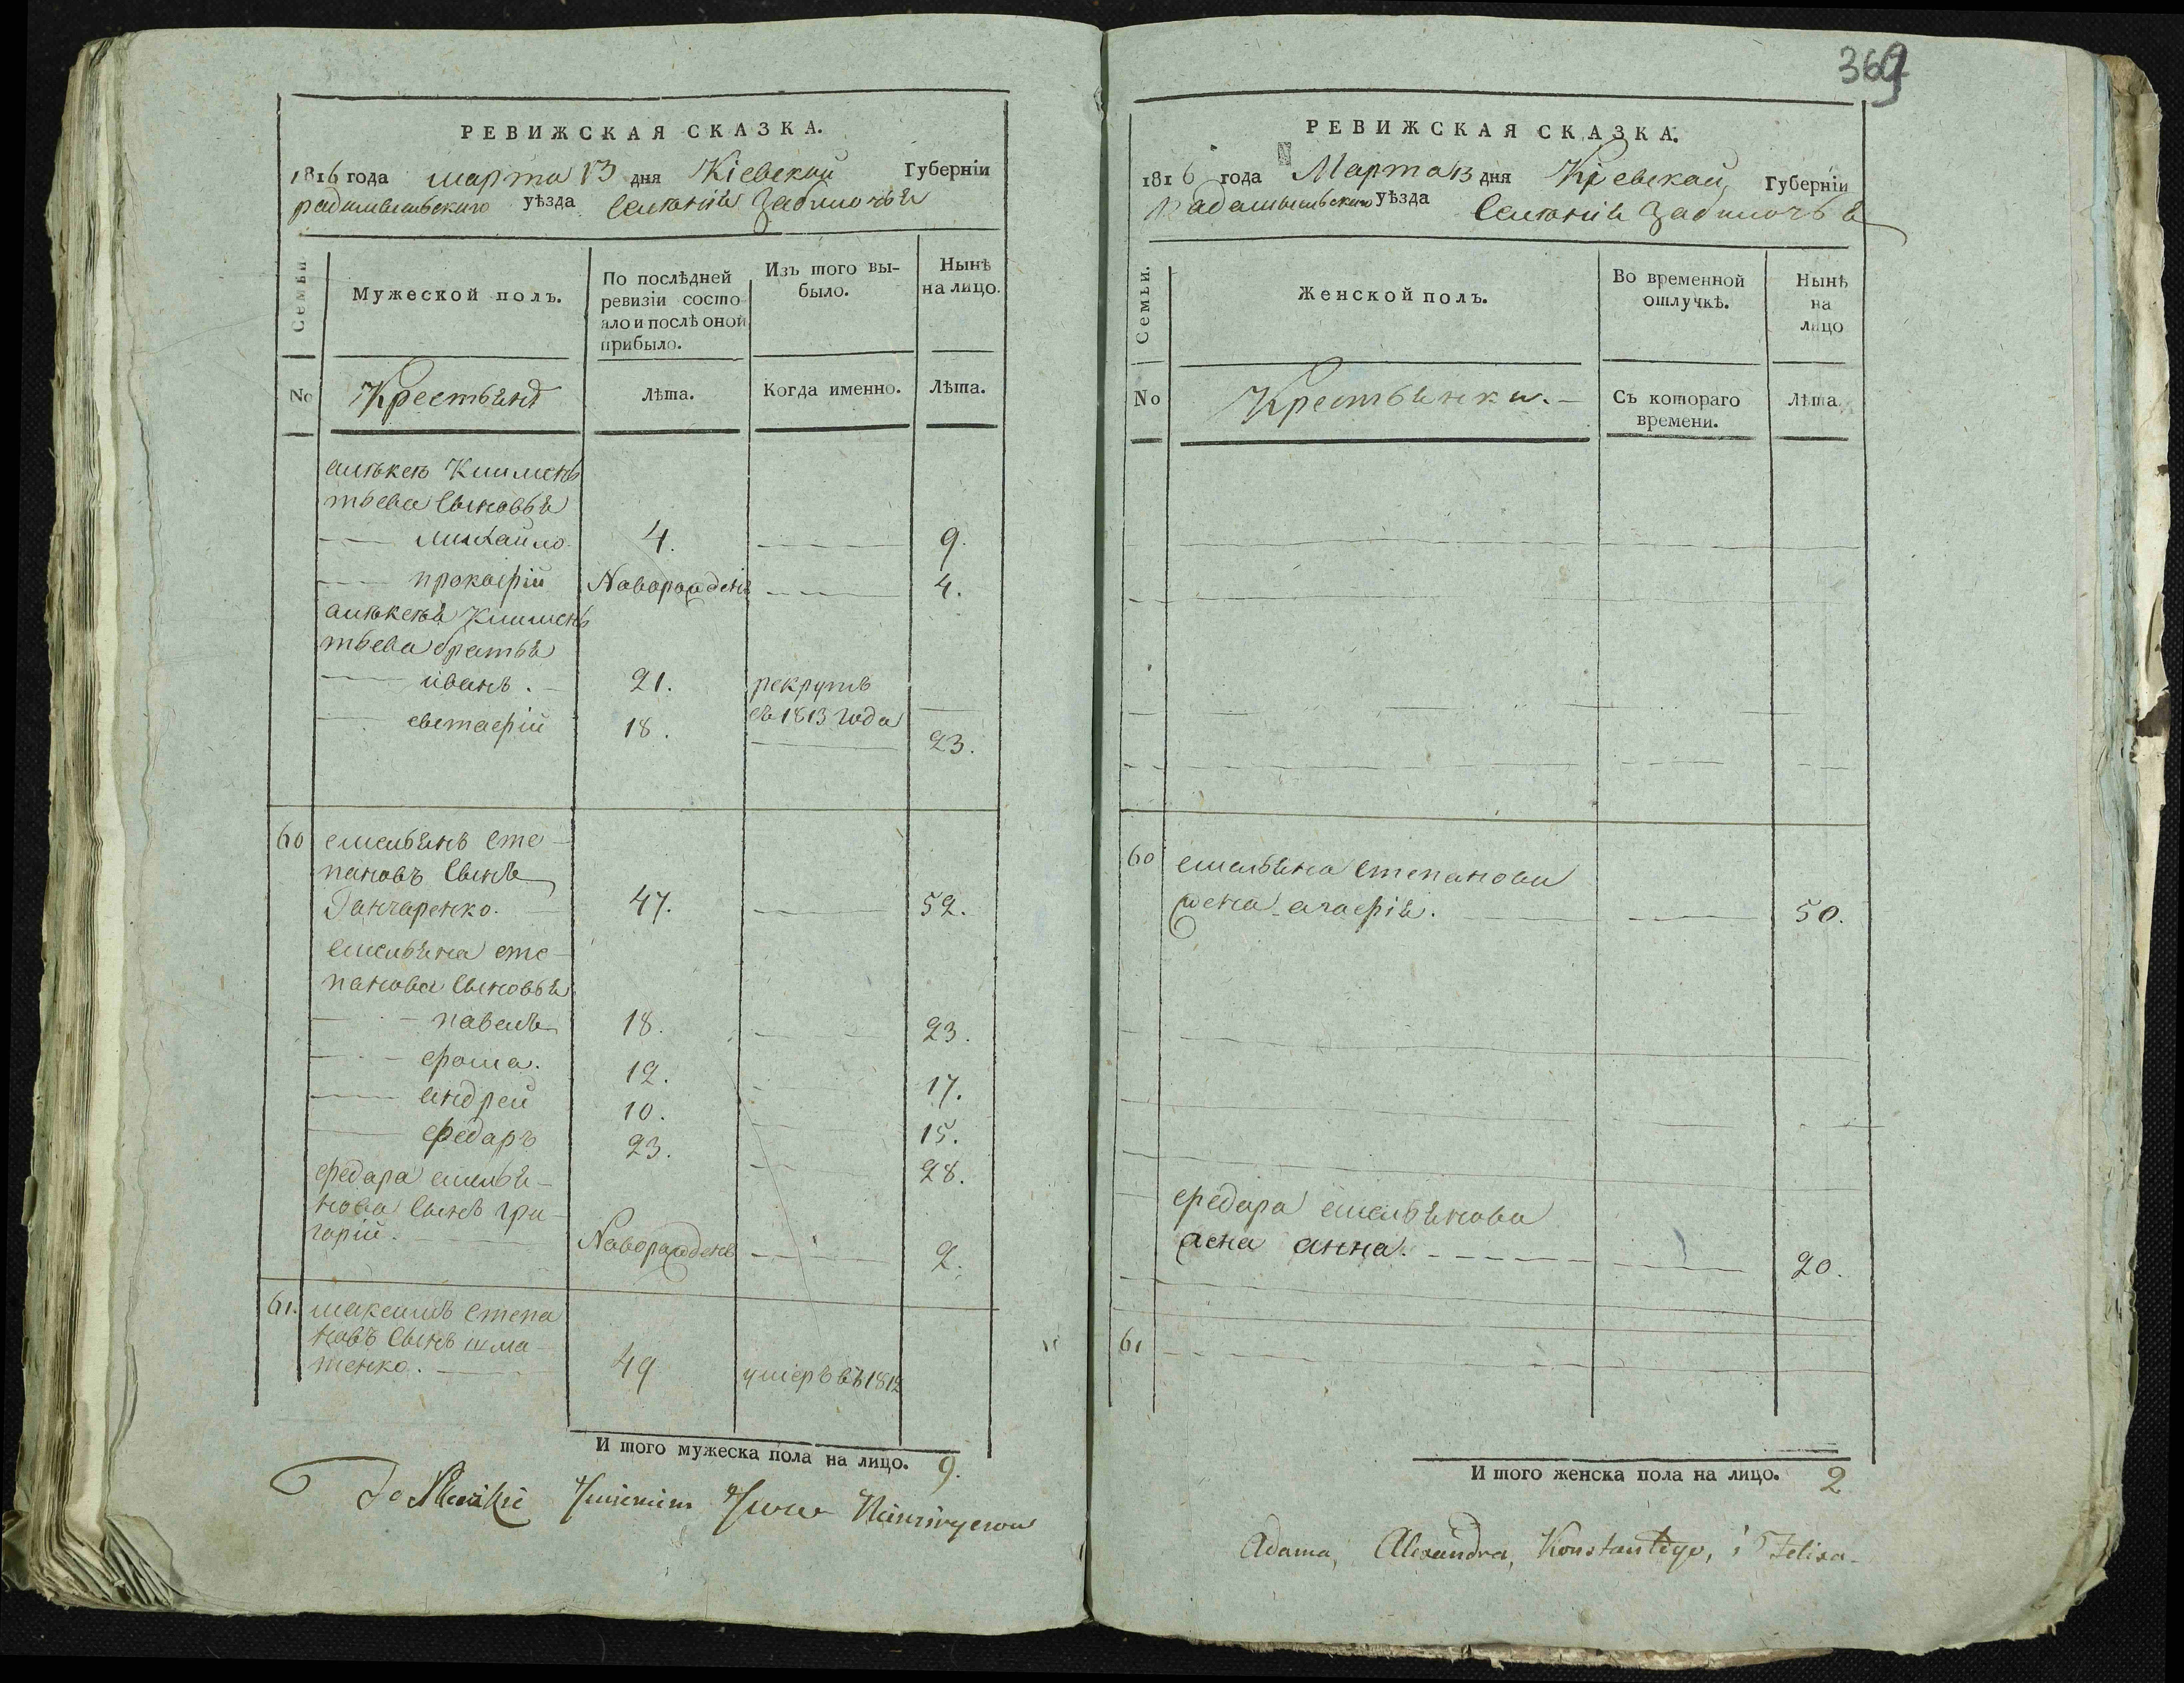 369
РЕВИЖСКАЯ СКАЗКА.
1816 года марта 13 дня Кіевской Губерніи
радомысльского уѣзда Селенія Забилочья
Семьи
Мужеской полъ.
По послѣдней
ревизіи состо
яло и послѣ оной
прибыло.
Изъ того вы-
было.
Нынѣ
на лицо.
No
Крестьянѣ
Лѣта.
Когда именно.
Лѣта.
алѣксѣ Климень
тьева Сыновья
Михайло 4. 9.
прокофій Новорожденъ 4.
алѣксѣя Климень
тьева братья
иванъ. 21. рекрутъ
съ 1813 года
евстафій 18. 23.
60 емельянъ Сте
пановъ Сынъ
Ганчаренко. 47. 52.
емельяна сте
панова Сыновья
павелъ 18. 23.
фома. 12. 17.
андрей 10. 15.
федаръ 23. 28.
федара емелья-
нова Сынъ гри
горій. Новорожденъ 2.
61. максимъ Степа
новъ Сынъ шма
тенко. 49 умеръ въ 1812
И того мужеска пола на лицо. 9.
РЕВИЖСКАЯ СКАЗКА.
1816 года Марта 13 дня Кіевской Губерніи
Радомысльского уѣзда Селенія Забилочья
Семьи.
Женской полъ.
Во временной
отлучкѣ.
Нынѣ
на
лицо
No
Крестьянки.
Съ котораго
времени.
Лѣта.
60 емельяна Степанова
жена агафія. 50.
федара емельянова
жена анна. 20.
61
И того женска пола на лицо. 2
Adama, Alexandra, Konstantego, i Felixa